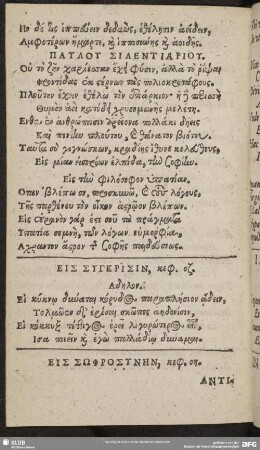 ΠΑΥΛΟΥ ΣΙΛΕΝΤΙΑΡΙΟΥ.
Οὐ τὸ ζῆν χαρίεσσαν ἔχει φύσιν, ἀλλὰ τὸ ῥῖψαι
φροντίδας ἐκ στέρνων τὰς πολιοκροτάφους.
Πλοῦτον ἔχειν ἐθέλω τὸν ἐπάρκιον· ἡ ἢ περισσὴ
Θυμὸν ἀεὶ κατέδει χρυσομανὴς μελέτη.
Ἔνθεν ἐν ἀνθρώποισιν ἀρείονα πολλάκι δήεις
Καὶ πενίην πλούτου, καὶ θάνατον βιότου.
Ταῦτα σὺ γιγνώσκων, κραδίης ἴθυνε κελεύθους,
Εἰς μίαν εἰσορόων ἐλπίδα, τὴν σοφίην.
Εἰς τὴν φιλόσοφον Ὑπατίαν.
Ὅταν βλέπω σε, προσκυνῶ, καὶ τοὺς λόγους,
Τῆς παρθένου τὸν οἶκον ἀστρῷον βλέπων.
Εἰς οὐρανὸν γάρ ἐστι σοῦ τὰ πράγματα
Ὑπατία σεμνὴ, τῶν λόγων εὐμορφία,
Ἄχραντον ἄστρον τῆς σοφῆς παιδεύσεως.
ΕΙΣ ΣΥΓΚΡΙΣΙΝ, κεφ. οζ.
Ἄδηλον.
Εἰ κύκνῳ δύναται κόρυδος παραπλήσιον ᾄδειν,
Τολμῷεν δ' ἐρίσαι σκῶπες ἀηδονίσιν,
Εἰ κόκκυξ τέττιγος ἐρεῖ λιγυρώτερος εἶναι,
Ἶσα ποιεῖν καὶ ἐγὼ παλλαδίῳ δύναμαι.
ΕΙΣ ΣΩΦΡΟΣΥΝΗΝ, κεφ. οη.
ΑΝΤΙ-
SLUB
DFG